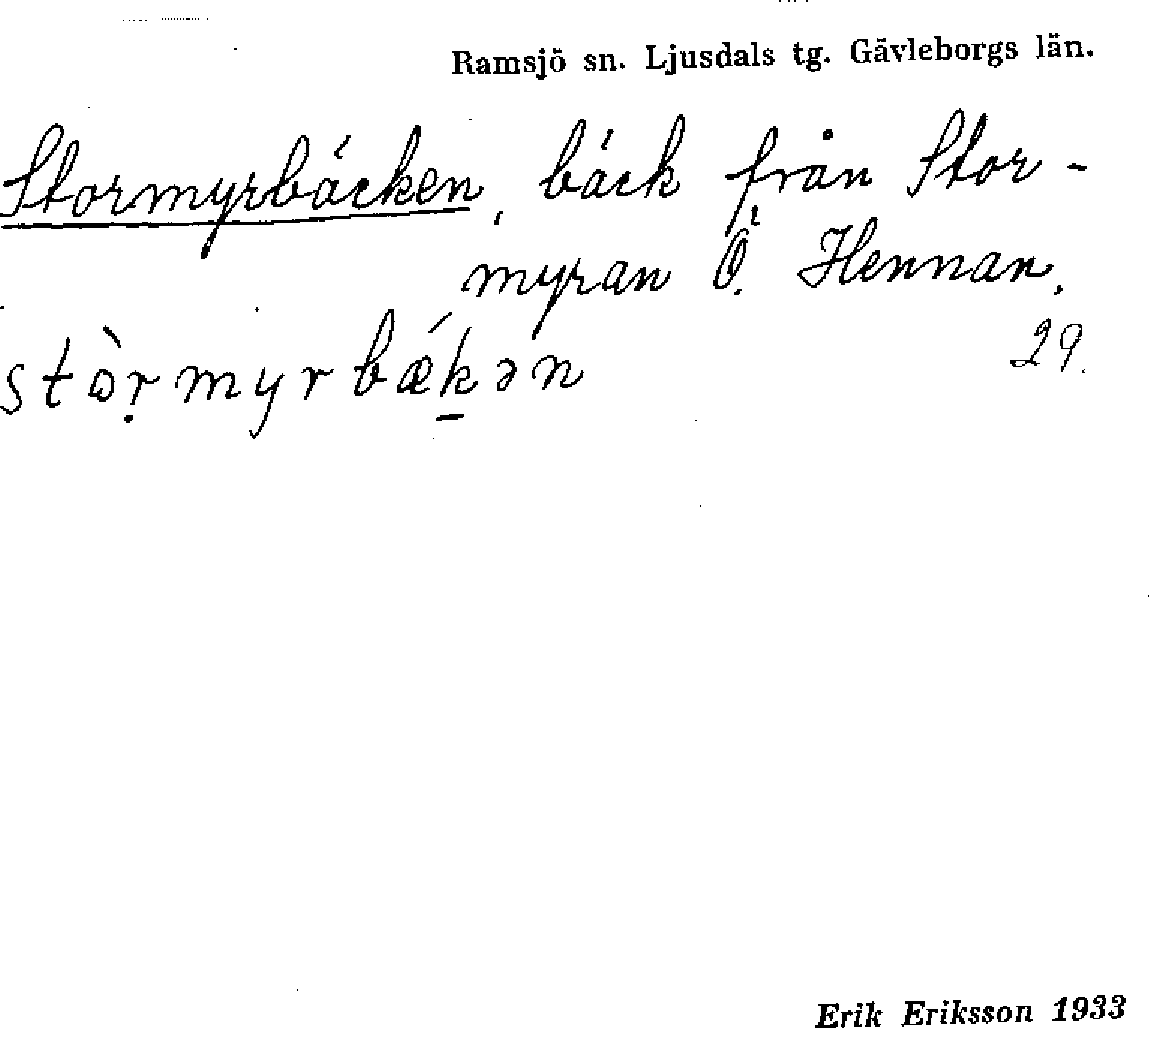 Ramsjö sn. Ljusdals tg. Gävleborgs län.
Stormyrbäcken, bäck från Stor-
myran Ö. Hennan.
stòṛmyrbǽḵən
29.
Erik Eriksson 1933